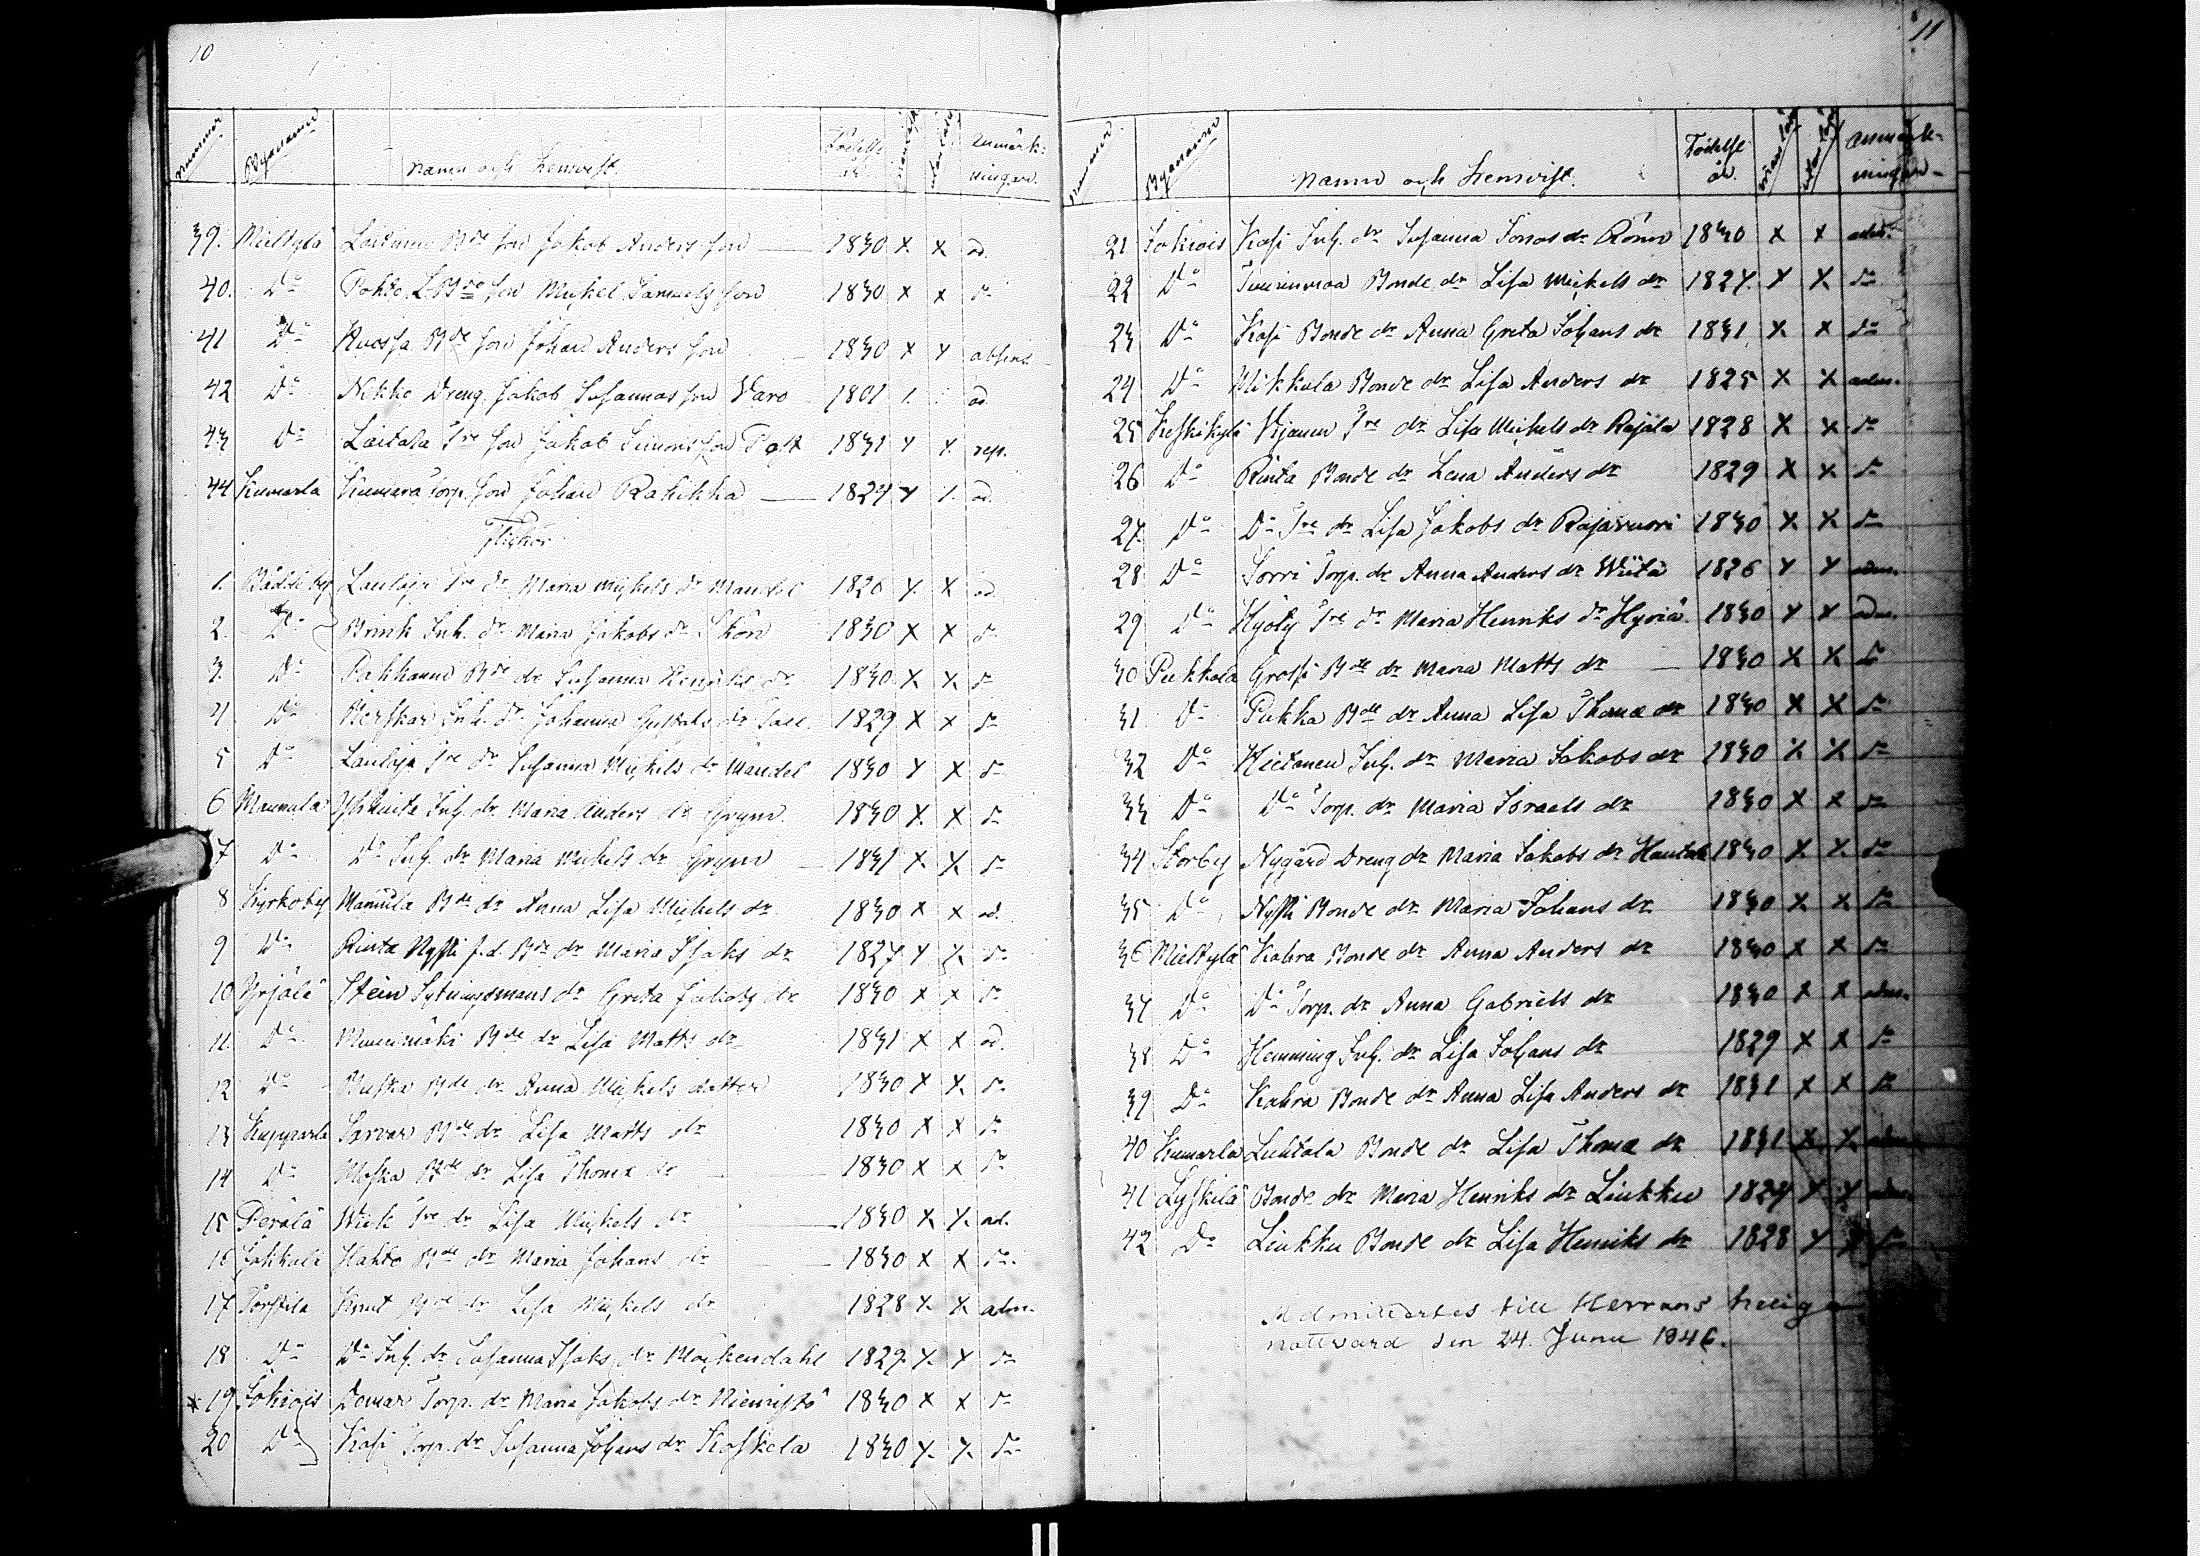 10
nummer Byanamn namn och hemvist. Födelse år. anmärkningar.
39. Mieltylä Laitinen Bde son Jakob Anders son 1830 x x ad.
40. Do Pohto L. Bde son Michel Samuels son 1830 x x do
41 Do Ruossa Bde son Johan Anders son 1830 x x absens
42 Do Nikko Dreng. Jakob Susannas son Varo 1801 ad.
43 Do Laitala Tre son Jakob Simons son Post 1831 x x rep.
44 Kumarla Kumara Torp. son Johan Rahikka 1829 x x ad.
Flickor
1. Laulaja Tre dr Maria Michels dr Mandel 1820 x x ad.
2. Do Brink Inh. dr Maria Jakobs dr Skön 1830 x x do
3. Do Pakkanen Bde dr Susanna Henriks dr 1830 x x do
4 Do Inh. dr Johanna Gustafs dr 1829 x x do
5 Do Laulaja Tre dr Susanna Michels dr Mandel 1830 x x do
6 Mannula Inh. dr Maria Anders dr Grym 1830 x x do
7 Do Do Inh. dr Maria Michels dr Grym 1831 x x do
8 Kyrkoby Mannila Bde dr Anna Lisa Michels dr 1830 x x ad.
9 Do Rinta Nyssti f.d. Bde dr Maria Isaks dr 1827 x x do
10 Yrjälä Stein Sytningsmans dr Greta Jakobs dr 1830 x x do
11. Do Bde dr Lisa Matts dr 1831 x x ad.
12 Do Ruska Bde dr Anna Michels dotter 1830 x x do
13 Kupparla Sarvar Bde dr Lisa Matts dr 1830 x x do
14 Do Moska Bde dr Lisa Thomæ dr 1830 x x do
15 Perälä Wiek Tre dr Lisa Michels dr 1830 x x ad.
16 Jakkula Hahto Bde dr Maria Johans dr 1830 x x do
17 Torttila Knut Bde dr Lisa Michels dr 1828 x x adm.
18 Do Do Inh. dr Susanna Isaks dr Mäckendahl 1829 x x do
* 19 Jokiois Domar Torp. dr Maria Jakobs dr Niemistö 1830 x x do
20 Do Kasi Torp. dr Susanna Johans dr Koskela 1830 x x do
11
nummer Byanamn namn och hemvist. Födelse år. anmärkningar
21 Jokiois Kasi Inh. dr Susanna Jonas dr Rönn 1830 x x adm.
22 Do Bonde dr Lisa Michels dr 1827 x x do
23 Do Kasi Bonde dr Anna Greta Johans dr 1831 x x do
24 Do Mikkola Bonde dr Lisa Anders dr 1825 x x adm.
25 Keskikylä Kijanen Tre dr Lisa Michels dr Rajala 1828 x x do
26 Do Rinta Bonde dr Lena Anders dr 1829 x x do
27 Do Do Tre dr Lisa Jakobs dr Rajavuori 1830 x x do
28 Do Sorri Torp. dr Anna Anders dr Wiitä 1826 x x adm.
29 Do Hyöty Tre dr Maria Henriks dr Hyriä 1830 x x adm.
30 Pukkola Grossi Bde dr Maria Matts dr 1830 x x do
31 Do Pukka Bde dr Anna Lisa Thomæ dr 1830 x x do
32 Do Kietanen Inh. dr Maria Jakobs dr 1830 x x do
33 Do Do Torp. dr Maria Israels dr 1830 x x do
34 Storby Nygård Dreng dr Maria Jakobs dr Hautala 1830 x x do
35 Do Nyssti Bonde dr Maria Johans dr 1830 x x do
36 Mieltylä Kahra Bonde dr Anna Anders dr 1830 x x do
37 Do Do Torp. dr Anna Gabriels dr 1830 x x adm.
38 Do Hemming Inh. dr Lisa Johans dr 1829 x x do
39 Do Kahra Bonde dr Anna Lisa Anders dr 1831 x x do
40 Kumarla Luhtala Bonde dr Lisa Thomæ dr 1831 x x adm.
41 Lyskilä Bonde dr Maria Henriks dr Liukku 1824 x x adm.
42 Do Liukku Bonde dr Lisa Henriks dr 1828 x x do
Admitterades till Herrans helig
nattvard den 24. Junii 1846.